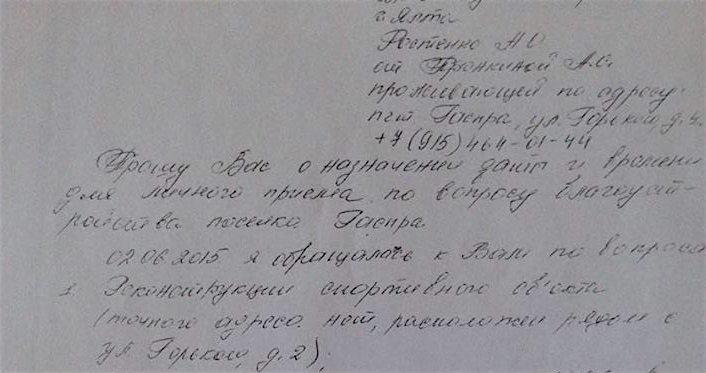 г. Ялта
Ростенко А О
от Пронкиной А.С.
проживающей по адресу:
пгт Гаспра, ул. Горького, д. 4.
+7 (915) 464-01-44
Прошу Вас о назначении даты и времени
для личного приема по вопросу благоуст-
ройства поселка Гаспра.
02.06.2015 я обращалась к Вам по вопроса
1 Реконструкции спортивного объекта
(точного адреса нет, расположен рядом с
ул Горького, д. 2);